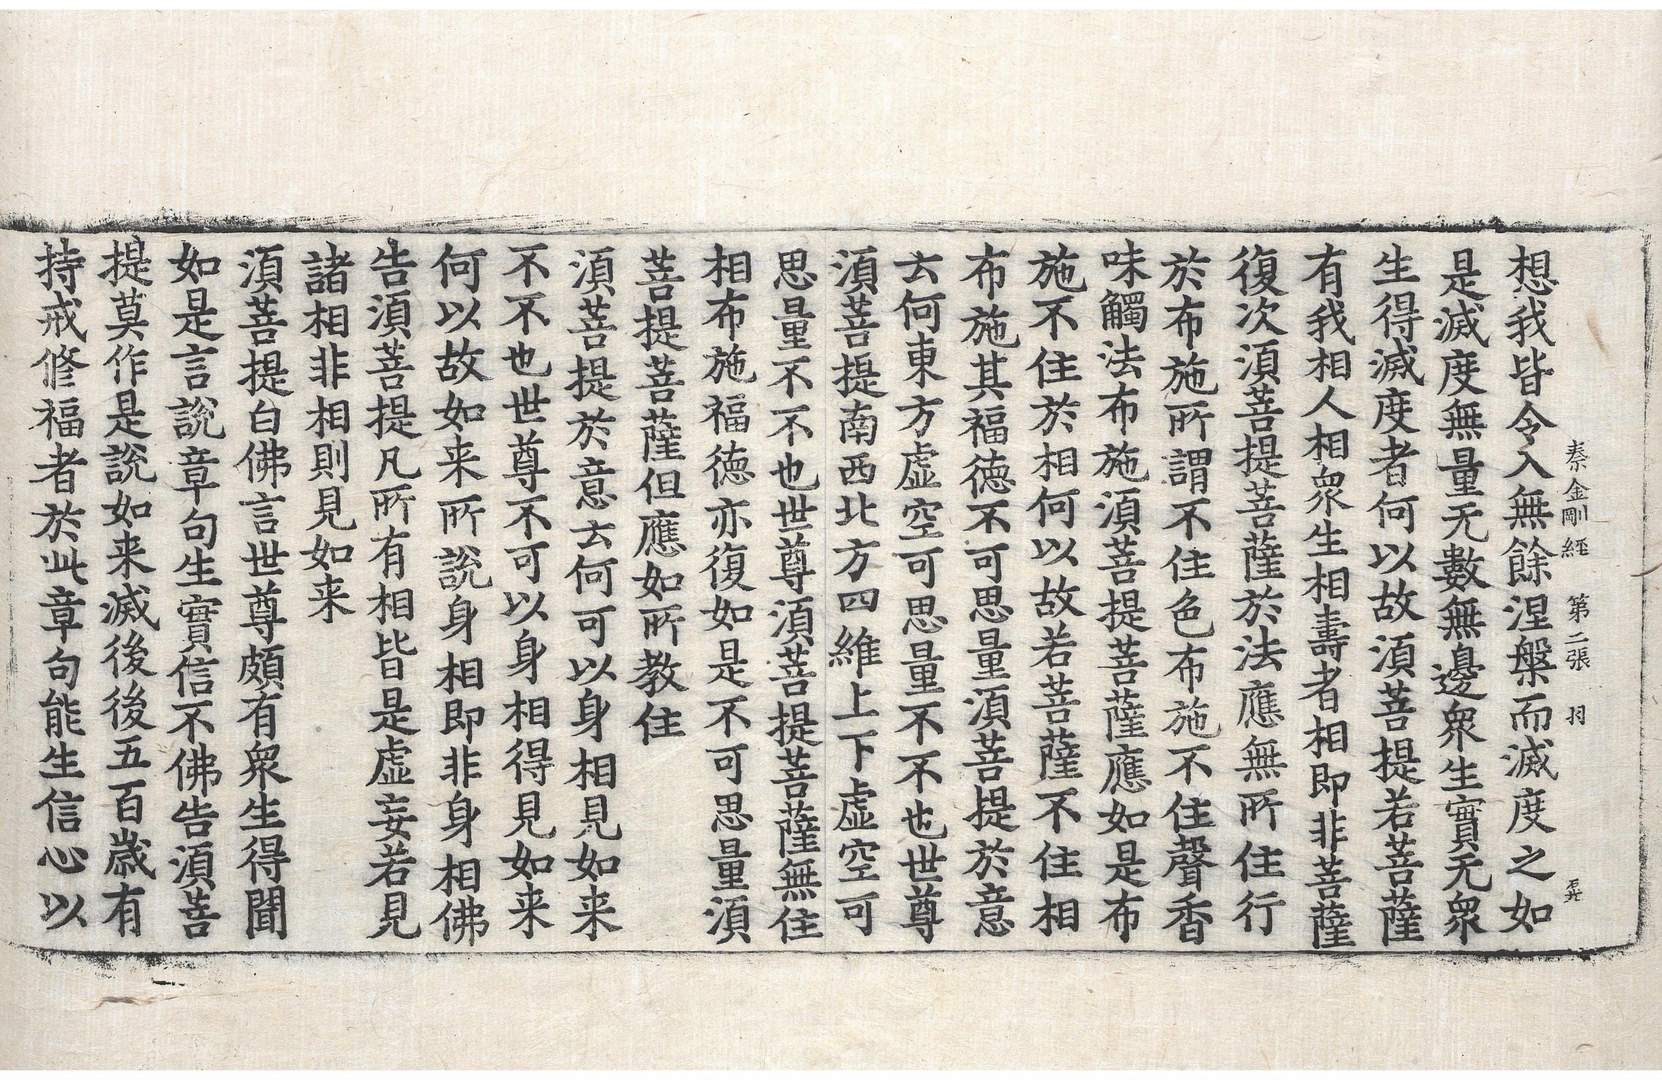 秦金剛經 第二張 羽
想我皆令入無餘涅槃而滅度之如
是滅度無量无數無邊衆生實无衆
生得滅度者何以故湏菩提若菩薩
有我相人相衆生相壽者相即非菩薩
復次湏菩提菩薩於法應無所住行
於布施所謂不住色布施不住聲香
味觸法布施湏菩提菩薩應如是布
施不住於相何以故若菩薩不住相
布施其福德不可思量湏菩提於意
云何東方虛空可思量不不也世尊
湏菩提南西北方四維上下虛空可
思量不不也世尊湏菩提菩薩無住
相布施福德亦復如是不可思量湏
菩提菩薩但應如所教住
湏菩提於意云何可以身相見如来
不不也世尊不可以身相得見如来
何以故如来所說身相即非身相佛
告湏菩提凡所有相皆是虛妄若見
諸相非相則見如来
湏菩提白佛言世尊頗有衆生得聞
如是言說章句生實信不佛告湏菩
提莫作是說如来滅後後五百歲有
持戒修福者於此章句能生信心以